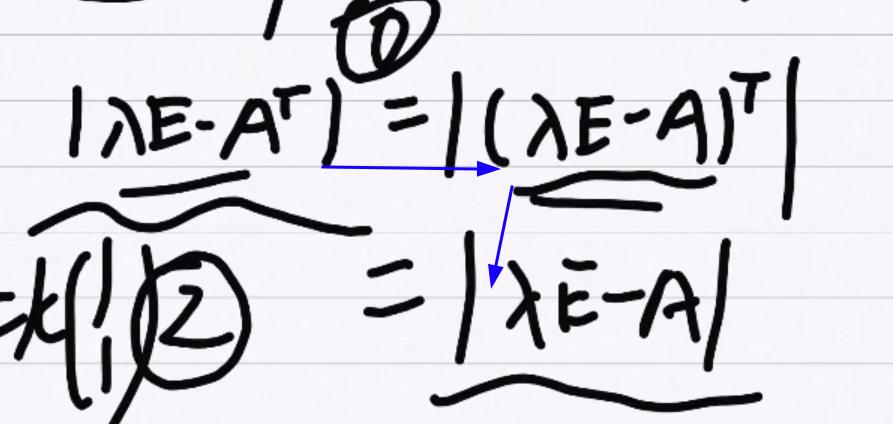 ①
|λE-Aᵀ| = |(λE-A)ᵀ|
=k(1 1) ② = |λE-A|